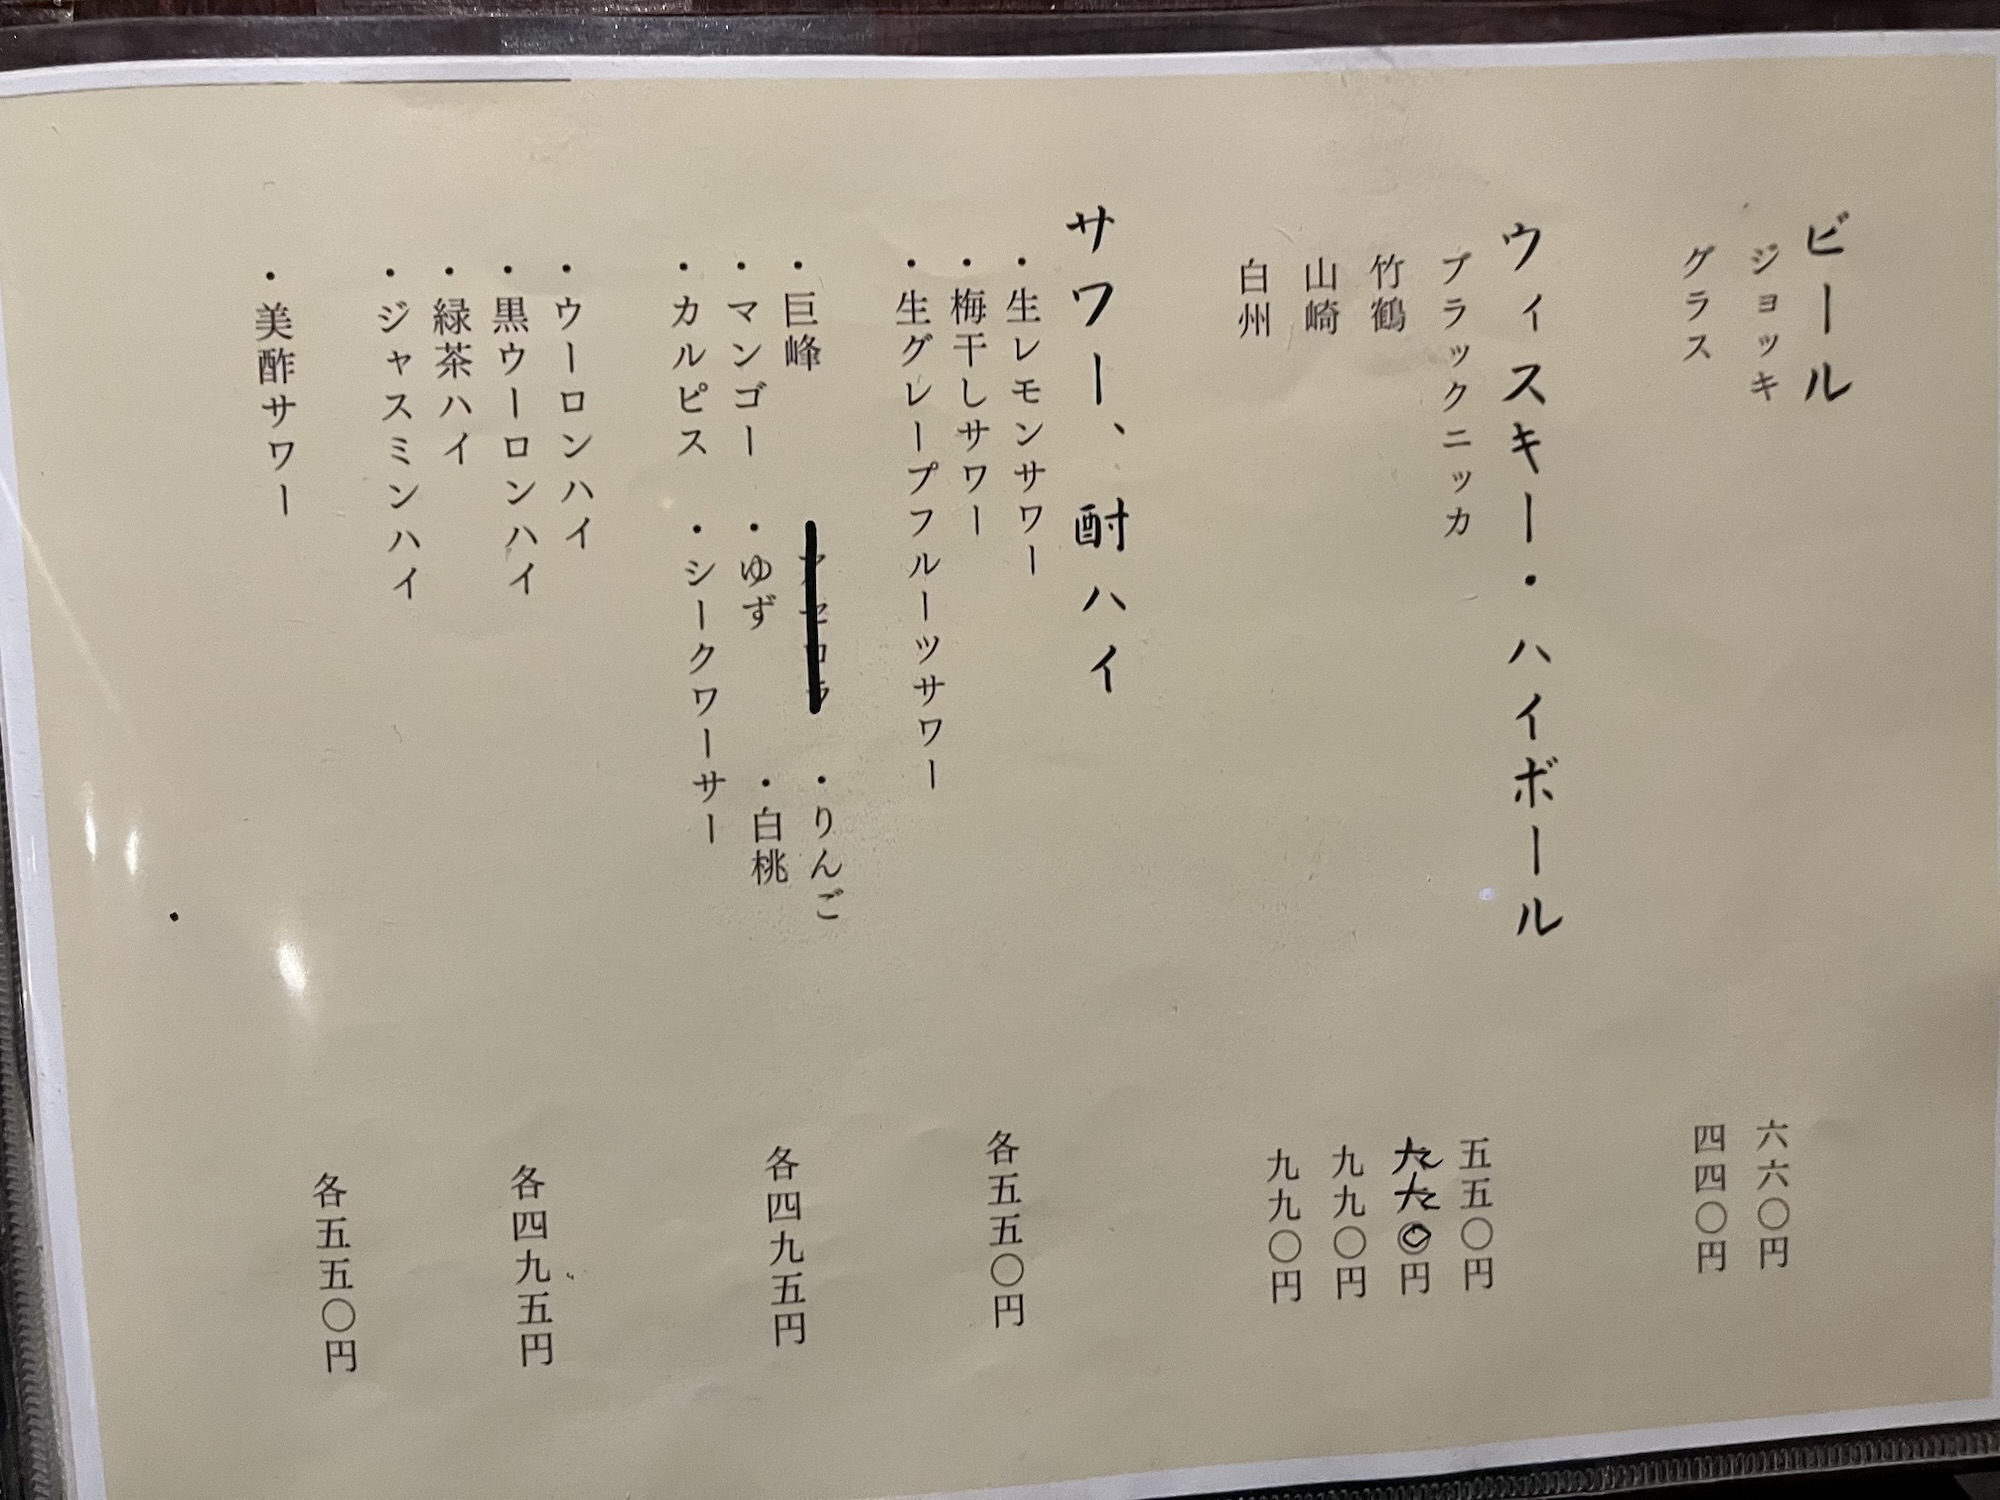 ビール
ジョッキ 六六〇円
グラス 四四〇円
ウィスキー・ハイボール
ブラックニッカ 五五〇円
竹鶴 円
山崎 九九〇円
白州 九九〇円
サワー、酎ハイ
・生レモンサワー
・梅干しサワー 各五五〇円
・生グレープフルーツサワー
・巨峰 アセロラ ・りんご
・マンゴー ・ゆず ・白桃 各四九五円
・カルピス ・シークワーサー
・ウーロンハイ
・黒ウーロンハイ 各四九五円
・緑茶ハイ
・ジャスミンハイ
・美酢サワー 各五五〇円